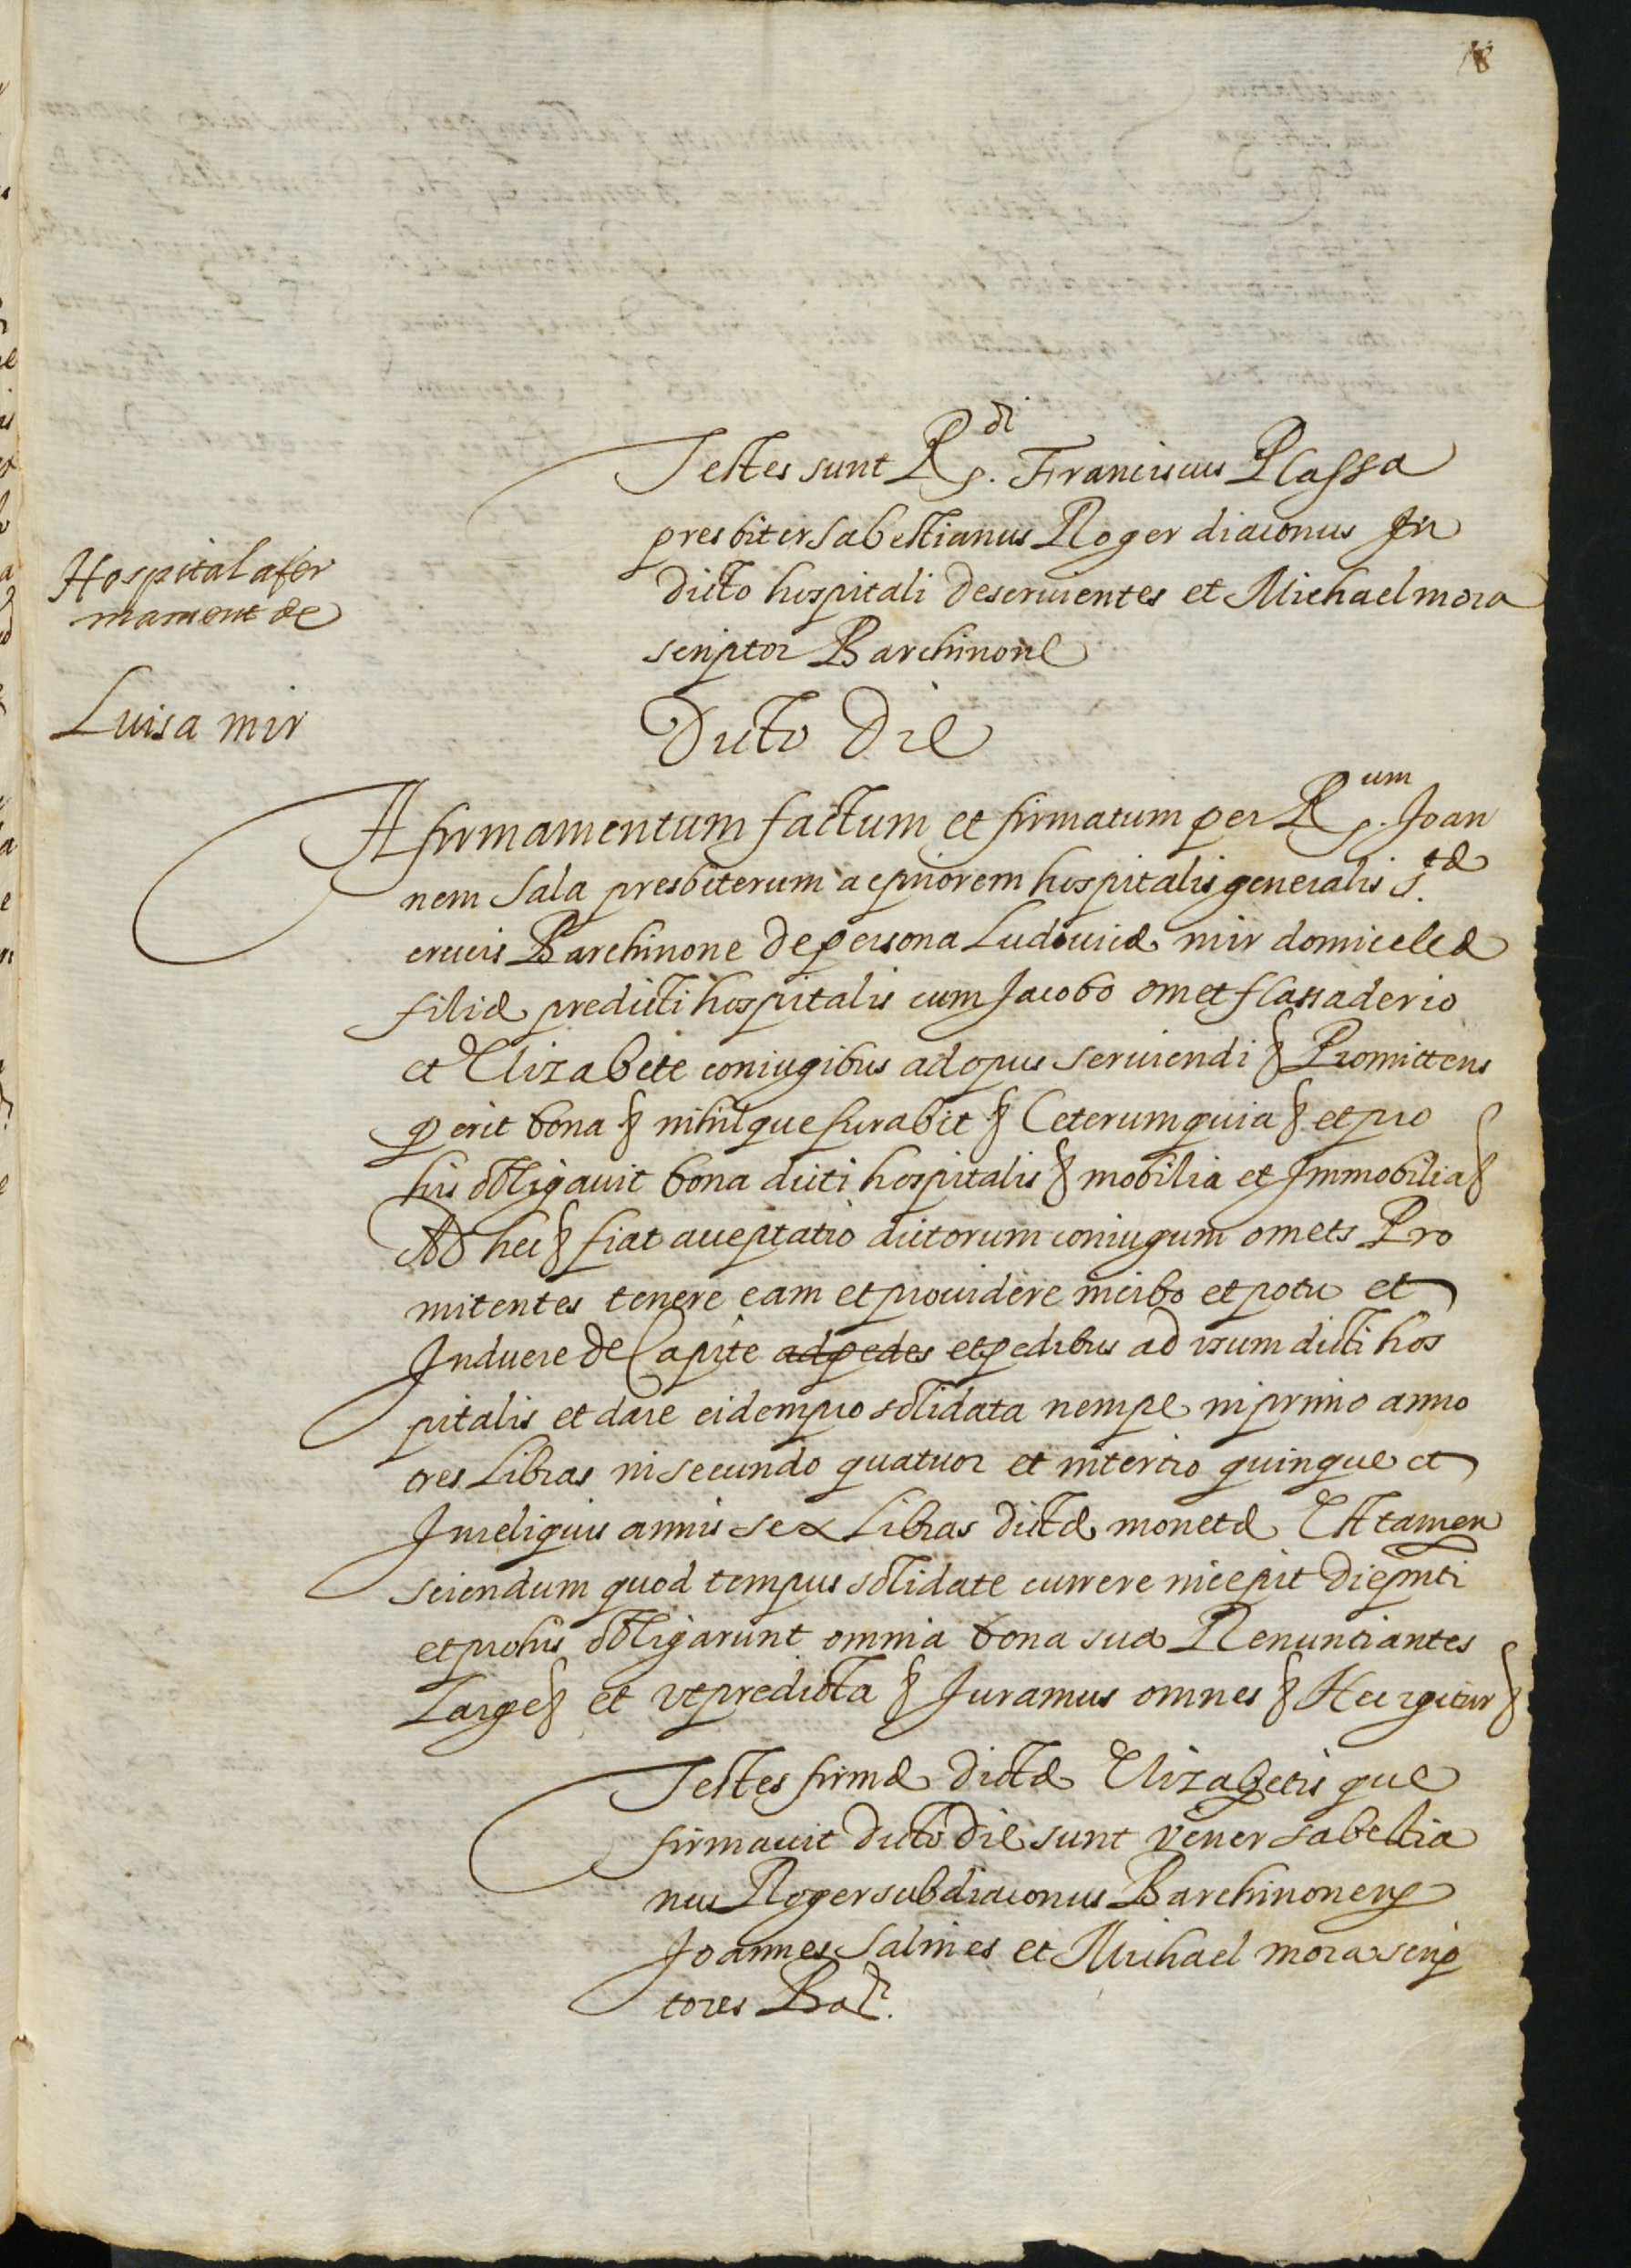 18
Testes sunt R.di Franciscus Plassa
presbiter Sabestianus Roger diaconus In
dicto hospitali deseruientes et Michael mora
scriptor Barchinone
Hospital afer
mament de
Luisa mir
Dicto Die
Afirmamentum factum et firmatum per R.um Joan
nem Sala presbiterum ac priorem hospitalis generalis S.tæ
crucis Barchinone de persona Ludouicæ mir domicelæ
filiæ predicti hospitalis cum Jacobo omet flassaderio
et Elizabete coniugibus ad opus seruiendi & Promittens
q erit bona & nihilque furabit & Ceterum quia & et pro
his obligauit bona dicti hospitalis & mobilia et Immobilia &
Ad hec & fiat acceptatio dictorum coniugum omets Pro
mitentes tenere eam et prouidere in cibo et potu et
Induere de Capite ad pedes et pedibus ad vsum dicti hos
pitalis et dare eidem pro solidata nempe in primo anno
tres Libras in secundo quatuor et in tertio quinque et
In reliquis annis sex Libras dictæ monetæ Est tamen
sciendum quod tempus solidate currere incepit die pnti
et pro his obligarunt omnia bona sua Renuntiantes
Large & et vt predicta & Juramus omnes & Hec igitur &
Testes firmæ dictæ Elizabetis que
firmauit dicto die sunt vener Sabestia
nus Roger subdiaconus Barchinonens
Joannes Salines et Michael mora scrip
tores Bar.